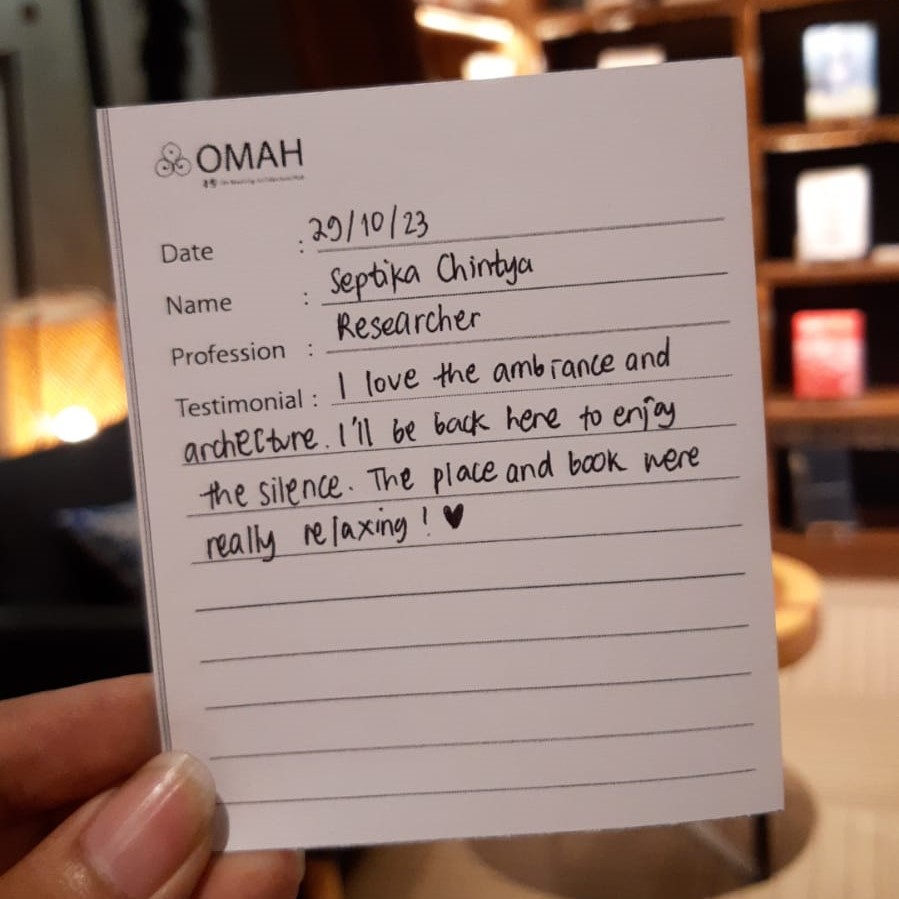 OMAH
Date : 29/10/23
Name : Septika Chintya
Profession : Researcher
Testimonial : I love the ambiance and
archecture. I'll be back here to enjoy
the silence. The place and book were
really relaxing! ♥